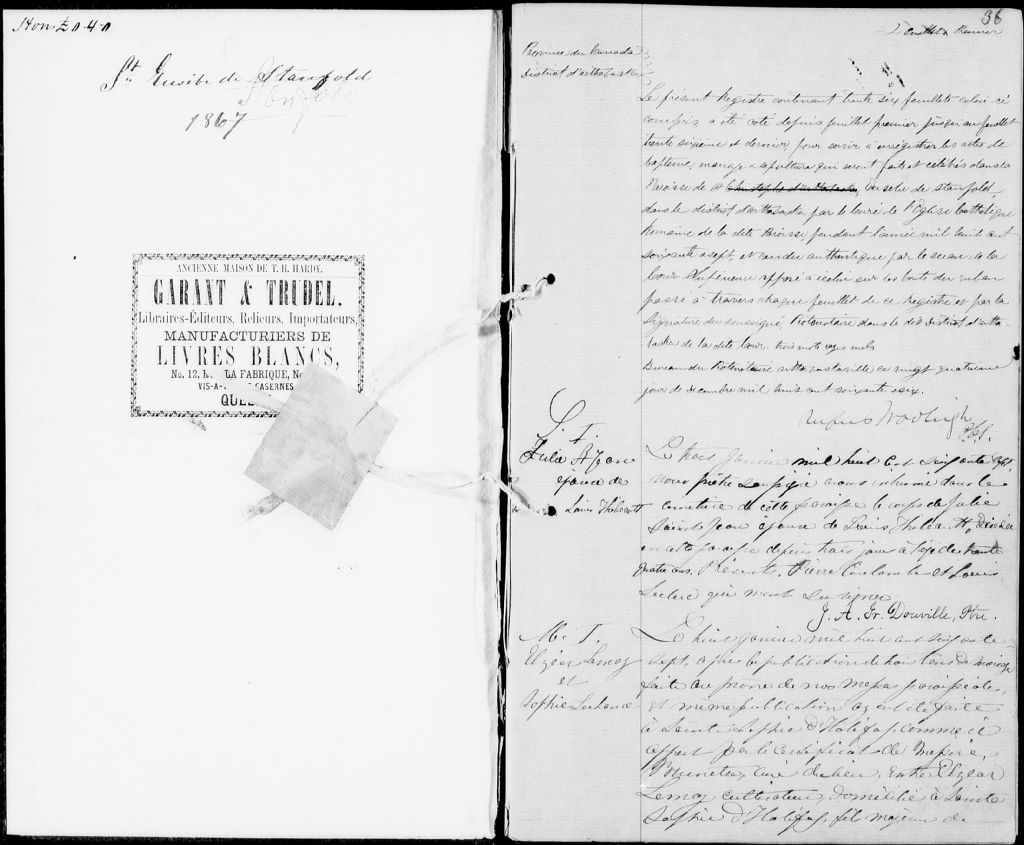 St Eusèbe de Stanfold
1867
ANCIENNE MAISON DE T. H. HARDY.
GARANT & TRUDEL.
Libraires-Éditeurs, Relieurs, Importateurs,
MANUFACTURIERS DE
LIVRES BLANCS,
No. 12, LA FABRIQUE,
VIS-A- CASERNES
36
Province du Canada
District d'arthabaska
Le présent Registre contenant trente six feuillets celui-ci
compris a été coté depuis feuillet premier jusqu'au feuillet
trente sixième et dernier pour servir à enregistrer les actes de
baptême, mariage & sépulture qui seront faits et célébrés dans la
Paroisse de St Eusebe de Stanfold
dans le district d'arthabaska par le Curé de l'Eglise Catholique
Romaine de la dite Paroisse pendant l'année mil huit cent
soixante & sept, et rendu authentique par le sceau de la
Cour Supérieure apposé à la cire sur les bouts du ruban
passé à travers chaque feuillet de ce Registre et par la
Signature du soussigné Protonotaire dans le dit District d'artha-
baska de la dite Cour. trois mots rayés nuls
Bureau du Protonotaire arthabaskaville ce vingt quatrième
jour de décembre mil huit cent soixante & six.
S. I.
Julie St Jean
épouse de
Louis Thibeault
Le trois janvier mil huit cent soixante sept
nous prêtre soussigné avons inhumé dans le
cimetière de cette paroisse le corps de Julie
Saint Jean épouse de Louis décédée
en cette paroisse depuis trois jours à l'age de trente
quatre ans. Présents, Pierre Coulombe et Louis
Leclerc qui n'ont su signer.
J. A. Ir. Douville, Ptre.
M. I.
Elzéar Lemay
et
Sophie
Le huit janvier mil huit cent soixante
sept, après la publication de trois bans de mariage
faite au prône de nos messes paroissiales,
et même publication ayant été faite
à Sainte Sophie d'Halifax, comme il
appert par le certificat de Messire
Brunette, curé du lieu, entre Elzéar
Lemay, cultivateur, domicilié à Sainte
Sophie d'Halifax, fils majeur de